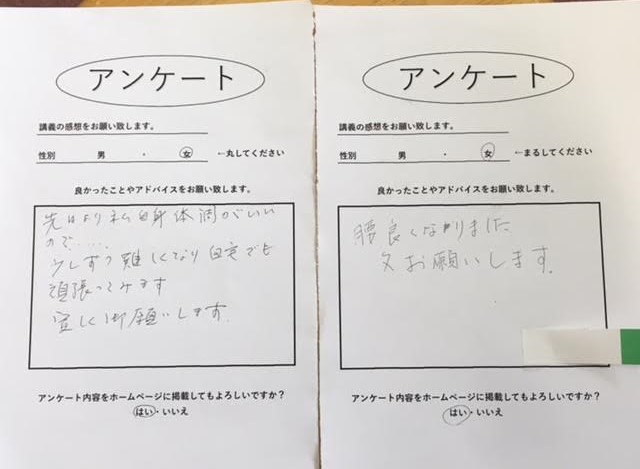 アンケート
講義の感想をお願い致します。
性別 男 ・ 女 ←丸してください
良かったことやアドバイスをお願い致します。
先日より私自身体調がいい
ので.....
少しずつ難しくなり自宅でも
頑張ってみます
宜しく御願いします。
アンケート内容をホームページに掲載してもよろしいですか?
はい・いいえ
アンケート
講義の感想をお願い致します。
性別 男 ・ 女 ←まるしてください
良かったことやアドバイスをお願い致します。
腰良くなりました
又お願いします。
アンケート内容をホームページに掲載してもよろしいですか?
はい・いいえ